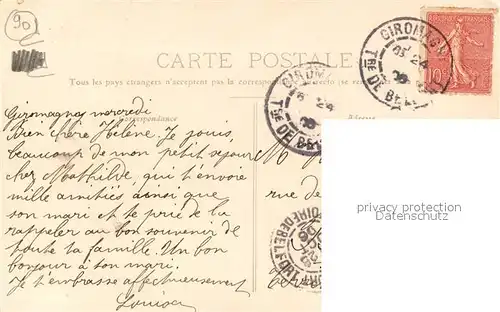 90
CARTE POSTALE
Tous les pays étrangers n'acceptent pas la correspondance
Correspondance
Giromagny mercredi
Bien chère Hélène. Je jouis,
beaucoup de mon petit séjour
chez Mathilde, qui t'envoie
mille amitiés ainsi que
son mari et te prie de la
rappeler au bon souvenir de
toute la famille. Un bon
bonjour à son mari.
Je t'embrasse affectueusement
Louise
M
rue de
GIROMAGNY
24
Tre DE BELF
GIROM
24
Tre DE BE
TOIRE DE BELFORT
10
privacy protection
watermark